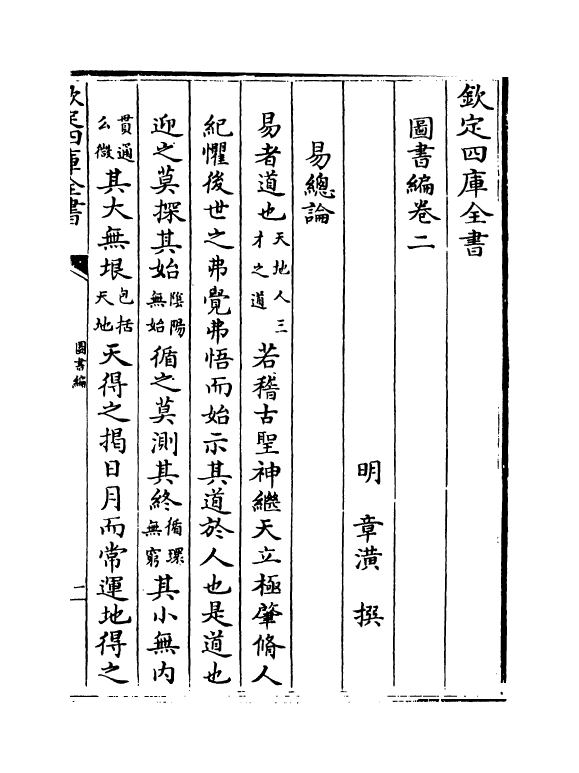 欽定四庫全書
圖書編卷二
明 章潢 撰
易總論
易者道也天地人三才之道若稽古聖神繼天立極肇脩人
紀懼後世之弗覺弗悟而始示其道於人也是道也
迎之莫探其始陰陽無始循之莫測其終循環無窮其小無內
貫通么微其大無垠包括天地天得之揭日月而常運地得之
欽定四庫全書
圖書編
二